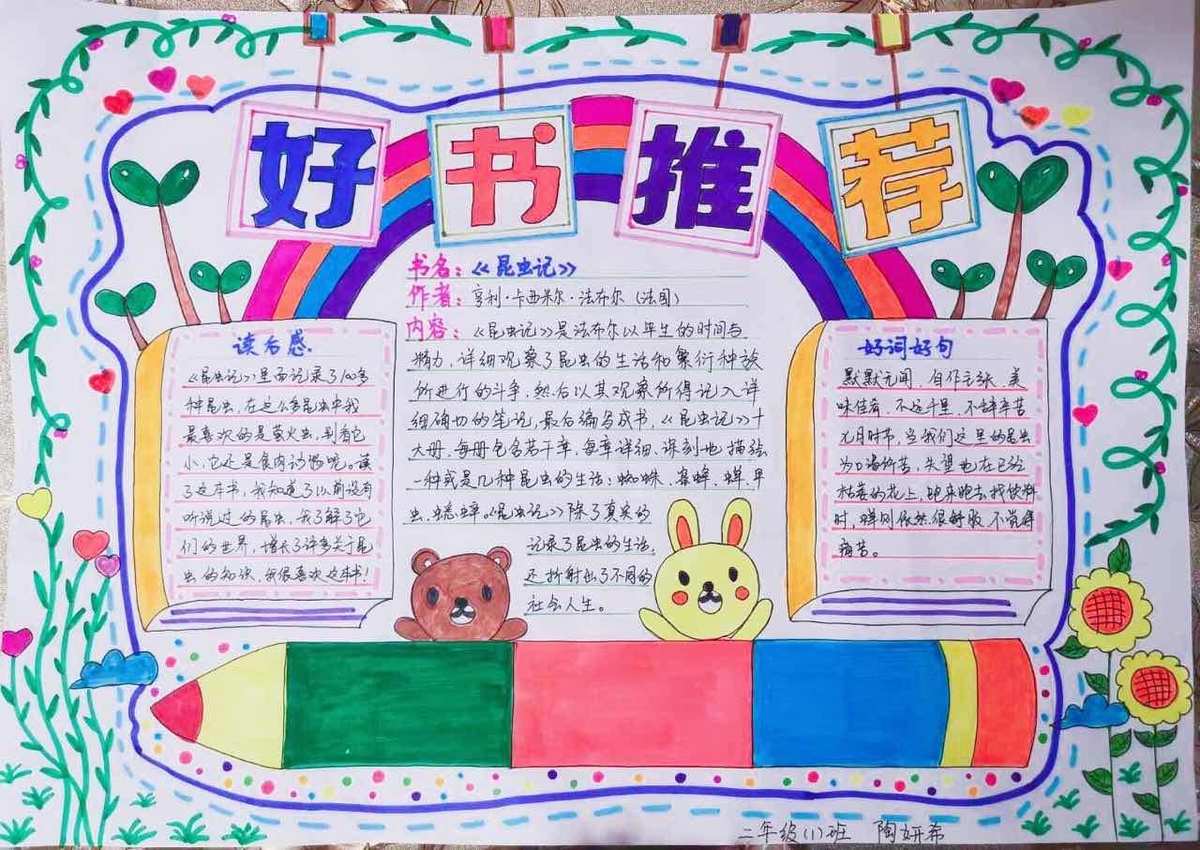 好书推荐
书名：《昆虫记》
作者：亨利·卡西米尔·法布尔（法国）
内容：《昆虫记》是法布尔以毕生的时间与
精力，详细观察了昆虫的生活和繁衍种族
所进行的斗争，然后以其观察所得记入详
细确切的笔记，最后编写成书，《昆虫记》十
大册，每册包含若干章，每章详细、深刻地描绘
一种或是几种昆虫的生活：蜘蛛、蜜蜂、螳、
虫、蟋蟀。《昆虫记》除了真实的
记录了昆虫的生活，
还折射出了不同的
社会人生。
读后感
《昆虫记》里面记录了100多
种昆虫，在这么多昆虫中我
最喜欢的是萤火虫，别看它
小，它还是食肉动物呢。读
了这本书，我知道了以前没有
听说过的昆虫，我了解了它
们的世界，增长了许多关于昆
虫的知识，我很喜欢这本书！
好词好句
默默无闻、自作主张、美
味佳肴、不远千里、不辞辛苦
七月时节，当我们这里的昆虫
为口渴所苦，失望地在已经
枯萎的花上，跑来跑去找饮料
时，蝉则依然很舒服，不觉得
痛苦。
二年级(1)班 陶妍希